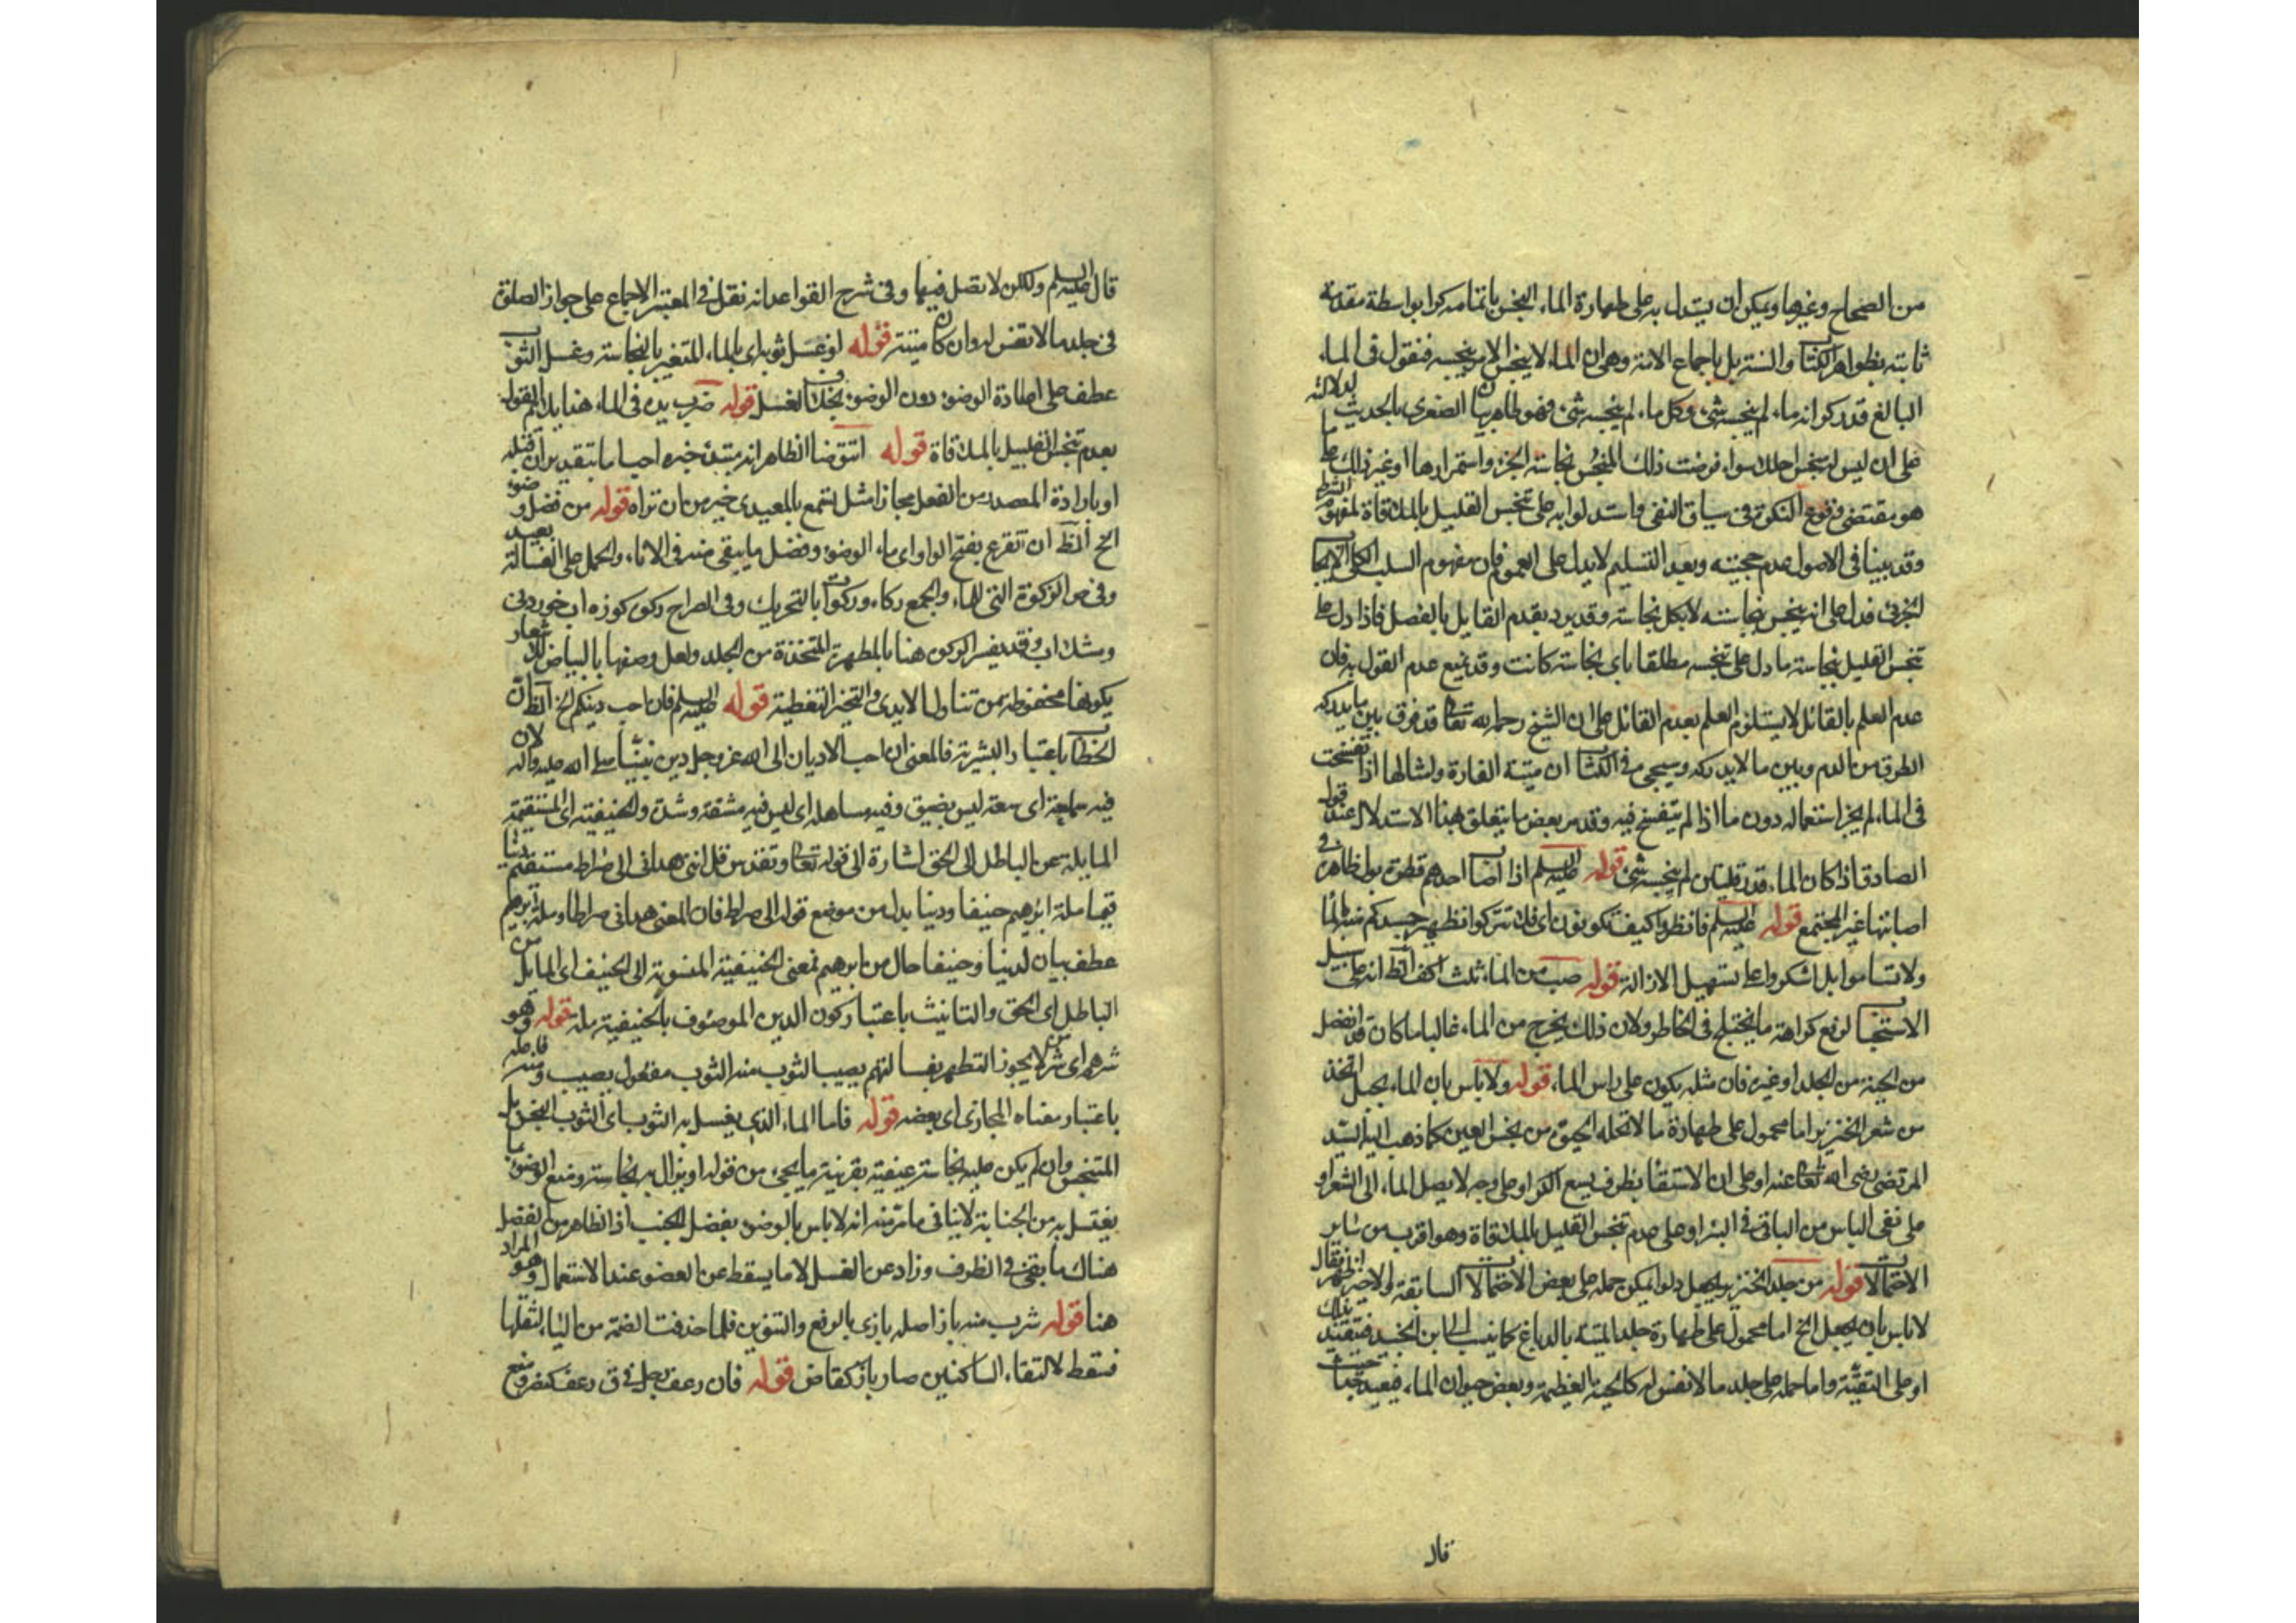 من الصحاح وغيرها ويمكن ان يستدل به على طهارة الماء النجس باتمامه كرا بواسطة مقدمة
ثابتة بظواهر الكتاب والسنة بل باجماع الامة وهى ان الماء لا ينجس الا من ينجسه فنقول فى الماء
البالغ قدر كر انه ماء لم ينجسه شئ وكل ماء لم ينجسه شئ فهو طاهر بيان الصغرى بالحديث لدلالته
على ان ليس له تنجس احداث سواء فرضت ذلك المنجس نجاسة الجزء واستمرارها او غير ذلك ما
هو مقتضى وقوع النكرة فى سياق النفى واستدلوا به على تنجس القليل بالملاقاة لمفهوم الشرط
وقد بينا فى الاصول عدم حجيته وبعد التسليم لا يدل على العموم فان مفهوم السلب الكلى الايجاب
الجزئى فدل على انه ينجس بنجاسة لا بكل نجاسة وقد يرد بعدم القايل بالفصل فاذا دل على
تنجس القليل بنجاسة ما دل على تنجسه مطلقا باى نجاسة كانت وقد يمنع عدم القول به فان
عدم العلم بالقائل لا يستلزم العلم بعدم القائل على ان الشيخ رحمه الله تعالى قد فرق بين ما يدركه
الطرف من الدم وبين ما لا يدركه وسيجئ فى الكتاب ان ميتة الفارة وامثالها اذا تفسخت
فى الماء لم يجز استعماله دون ما اذا لم يتفسخ فيه وقد مر بعض ما يتعلق بهذا الاستدلال عند قول
الصادق اذا كان الماء قدر قلتين لم ينجسه شئ قوله عليه السلم اذا اصاب احدهم قطرة بول ظاهره فى
اصابتها غير المجتمع قوله عليه السلم فانظروا كيف تكونون اى فلا تتركوا تطهير جسدكم
ولا تساموا بل اشكروا على تسهيل الازالة قوله صب من الماء ثلث اكف الظ انه على سبيل
الاستحباب لرفع كراهة ما يختلج فى الخاطر ولان ذلك يخرج من الماء غالبا ما كان قد انفصل
من الجنة من الجلد او غيره فان مثله يكون على راس الماء قوله ولا باس بان الماء بحبل اتخذ
من شعر الخنزير اما محمول على طهارة ما لا تحله الحيوة من نجس العين كما ذهب اليه السيد
المرتضى رضى الله تعالى عنه او على ان الاستقاء بظرف يسع الكر او على وجه لا يصل الماء الى الشعر او
على نفى الباس من الباقى فى البئر او على عدم تنجس القليل بالملاقاة وهو اقرب من ساير
الاحتمالات قوله من جلد الخنزير يجعل دلوا يمكن حمله على بعض الاحتمالات السابقة والاخير اظهر قال
لا باس بان يجعل الخ اما محمول على طهارة جلد الميتة بالدباغ كما نسب الى ابن الجنيد فتقيد بذلك
او على التقية واما حمله على جلد ما لا نفس له كالحية العظيمة وبعض حيوان الماء فبعيد حيث
قال
قال عليه السلم ولكن لا تصل فيها وفى شرح القواعد انه نقل فى المعتبر الاجماع على جواز الصلوة
فى جلد ما لا نفس له وان كان ميتة قوله او غسل ثوبه اى بالماء المتغير بالنجاسة وغسل الثوب
عطف على اعادة الوضوء دون الوضوء بخلاف الغسل قوله ضرب يده فى الماء هذا يلائم القول
بعدم تنجس القليل بالملاقاة قوله اتتوضأ الظاهر انه مبتدئ خبره احب اما بتقدير ان قبله
او بارادة المصدر من الفعل مجازا مثل تسمع بالمعيدى خير من ان تراه قوله من فضل وضوء
الخ الظ ان تقرء بفتح الواو اى ماء الوضوء وفضل ما يبقى منه فى الاناء والحمل على الغسالة بعيد
وفى ص الركوة التى للماء والجمع ركاء وركوات بالتحريك وفى الصراح ركوه كوزه اب خوردنى
ومشك اب وقد يفسر الركوه هنا بالمطهرة المتخذة من الجلد ولعل وصفها بالبياض للاشعار
بكونها محفوظة من تناولها الايدى والتخمير التغطية قوله عليه السلم فان احب دينكم الخ الظ ان
الخطاب باعتبار البشرية فالمعنى ان احب الاديان الى الله عز وجل دين نبينا صلى الله عليه واله لان
فيه سماحة اى سعة ليس بضيق وفيه مساهلة اى ليس فيه مشقة وشدة والحنيفية اى المستقيمة
المايلة عن الباطل الى الحق اشارة الى قوله تعالى وتقدس قل اننى هدانى الى صراط مستقيم دينا
قيما ملة ابرهيم حنيفا ودينا بدل من موضع قوله الى صراط فان المعنى هدانى صراطا وملة ابرهيم
عطف بيان لدينا وحنيفا حال من ابرهيم فمعنى الحنيفية المنسوبة الى الحنيف اى المايل من
الباطل الى الحق والتانيث باعتبار كون الدين الموصوف بالحنيفية ملة قوله وهو
شرهم اى شر لا يجوز التطهر بغسالتهم يصيب الثوب منه الثوب مفعول يصيب ومنه فاعله
باعتبار معناه المجازى اى بعضه قوله فاما الماء الذى يغسل به الثوب اى الثوب النجس بل
المتنجس وان لم يكن عليه نجاسة عينية بقرينة ما يجئ من قوله او يزال به نجاسة ومنع الوضوء بما
يغتسل به من الجنابة لا ينافى ما مر منه انه لا باس بالوضوء بفضل الجنب اذ الظاهر من الفضل
هناك ما بقى فى الظرف وزاد عن الغسل لا ما يسقط عن العضو عند الاستعمال وهو المراد
هنا قوله شرب منه باز اصله بازى بالرفع والتنوين فلما حذفت الضمة من الياء لثقلها
فسقط لالتقاء الساكنين صار باز كقاض قوله فان رعف رجل فى ق رعف كنصر ومنع